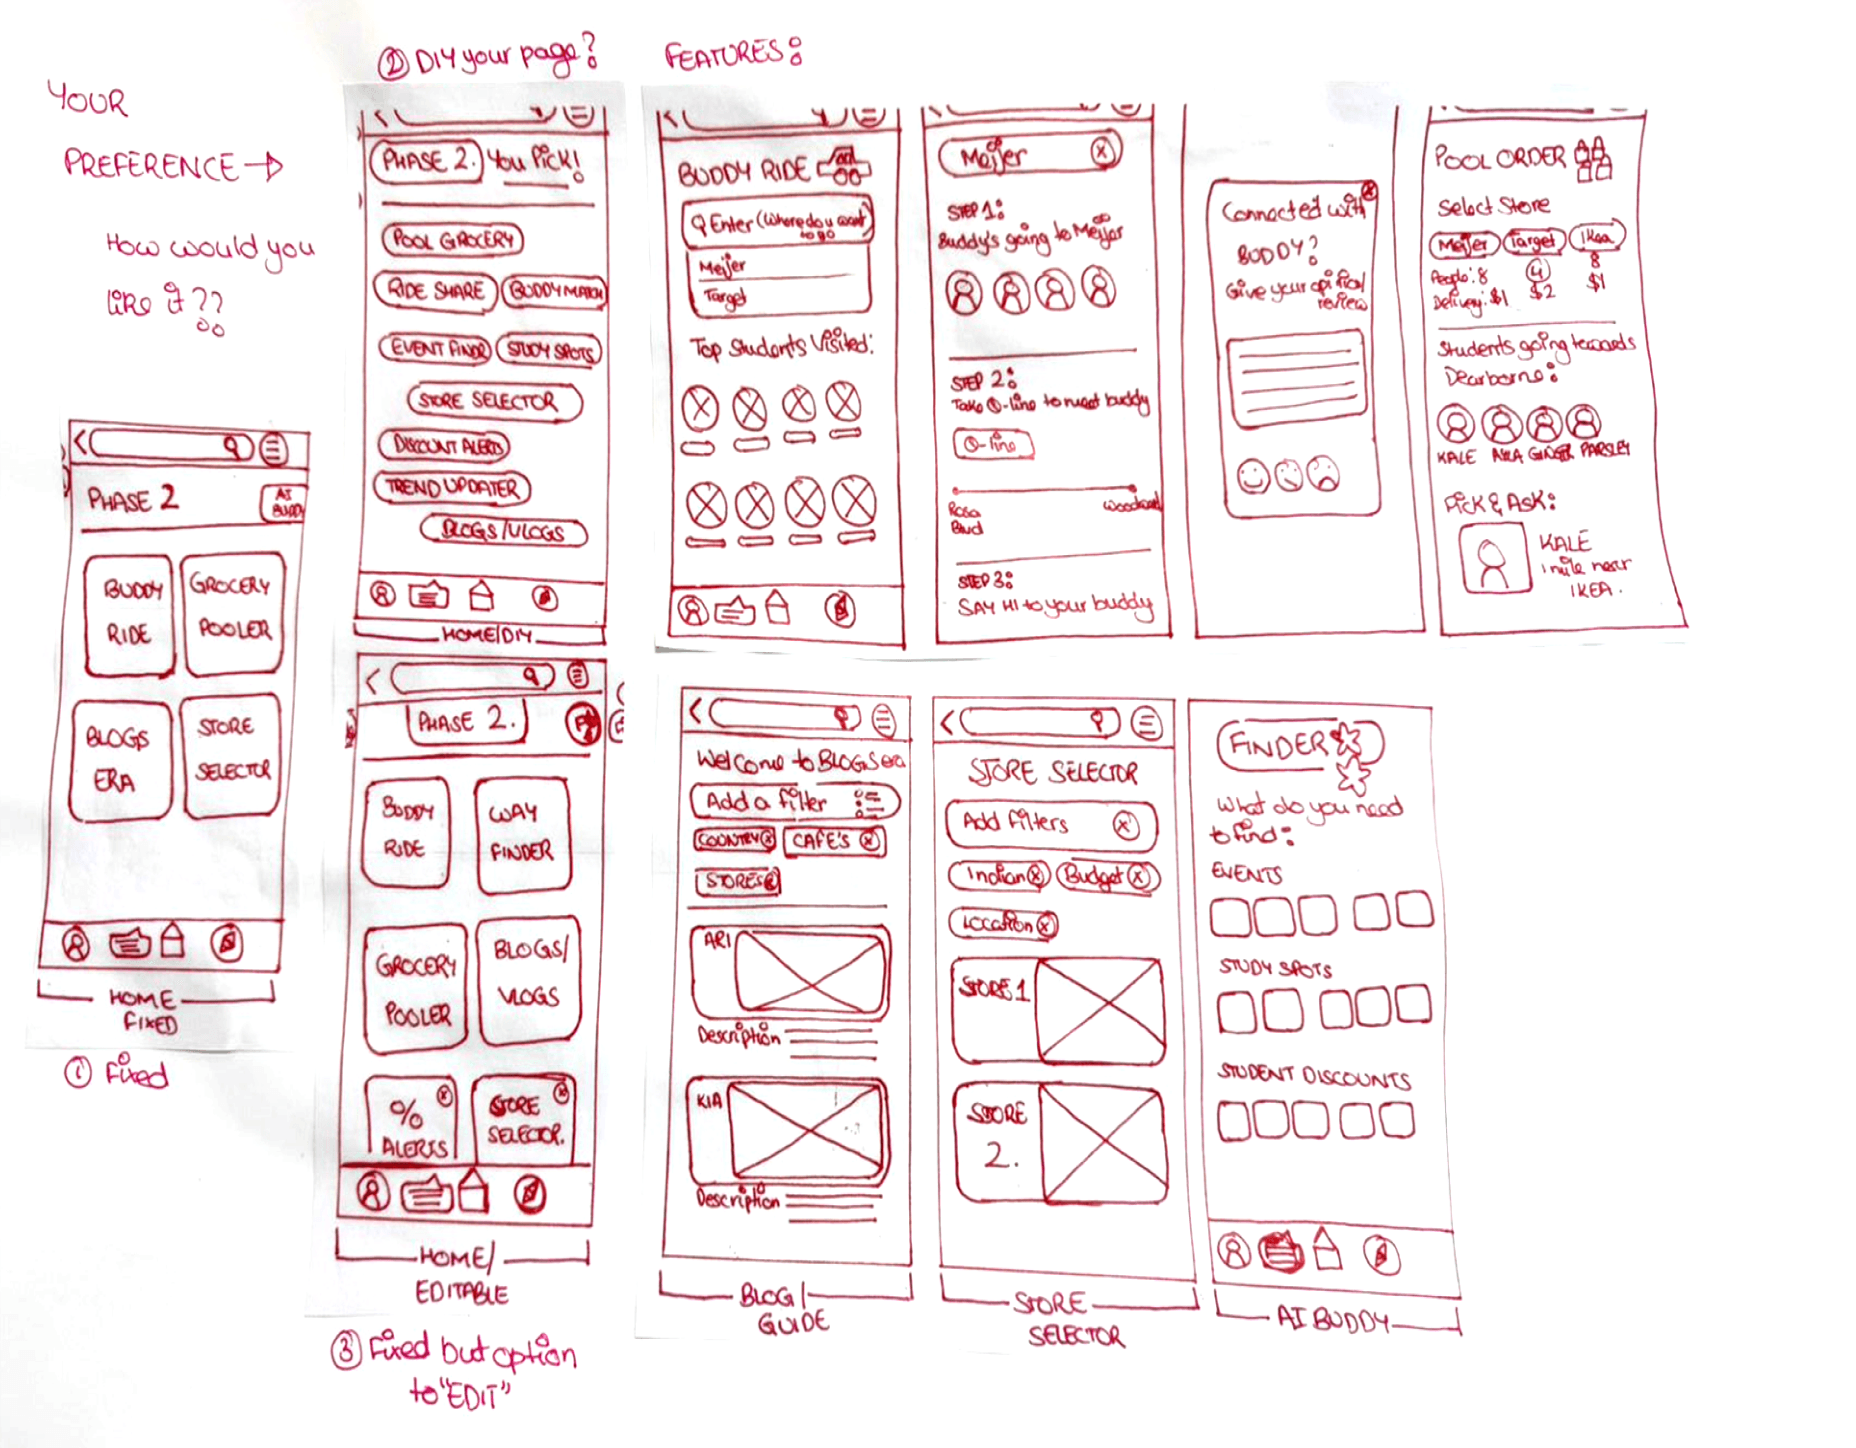 YOUR
PREFERENCE →
How would you
like it??
② DIY your page?
FEATURES:
PHASE 2
AI
BUDDY
BUDDY
RIDE
GROCERY
POOLER
BLOGS
ERA
STORE
SELECTOR
HOME
FIXED
① Fixed
PHASE 2. You Pick!
POOL GROCERY
RIDE SHARE
BUDDY MATCH
EVENT FINDR
STUDY SPOTS
STORE SELECTOR
DISCOUNT ALERTS
TREND UPDATER
BLOGS/VLOGS
HOME/DIY
PHASE 2.
BUDDY
RIDE
WAY
FINDER
GROCERY
POOLER
BLOGS/
VLOGS
%
ALERTS
STORE
SELECTOR.
HOME/
EDITABLE
③ Fixed but option
to "EDIT"
BUDDY RIDE
Enter (Where do you want
to go
Meijer
Target
Top Students Visited:
Meijer
STEP 1:
Buddy's going to Meijer
STEP 2:
Take Q-line to meet buddy
Q-line
Rosa
Blvd
woodward
STEP 3:
SAY HI to your buddy
Connected with
BUDDY?
Give your
review
POOL ORDER
Select Store
Meijer
Target
Ikea
People: 8
4
8
Delivery: $1
$2
$1
Students going towards
Dearborne:
KALE
GINGER
PARSLEY
Pick & ASK:
KALE
1 mile near
IKEA.
Welcome to BLOGS era
Add a filter
COUNTRY
CAFE'S
STORES
ARI
Description
KIA
Description
BLOG/
GUIDE
STORE SELECTOR
Add Filters
Indian
Budget
Location
STORE 1
STORE
2.
STORE
SELECTOR
FINDER
What do you need
to find:
EVENTS
STUDY SPOTS
STUDENT DISCOUNTS
AI BUDDY